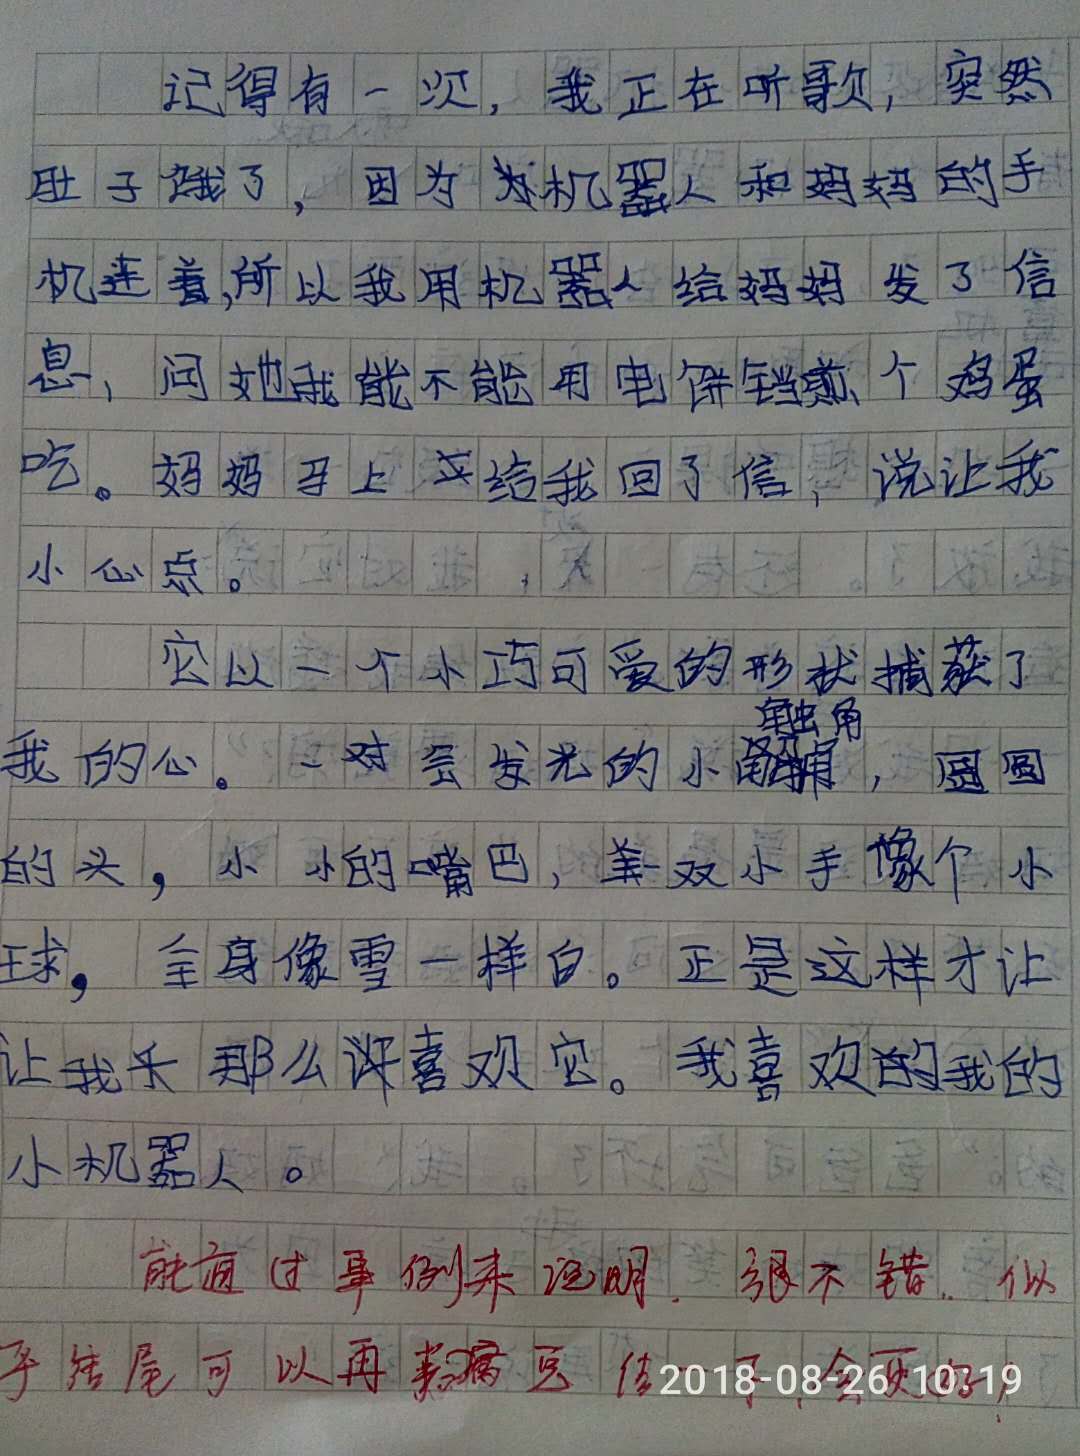 记得有一次，我正在听歌，突然
肚子饿了，因为机器人和妈妈的手
机连着，所以我用机器人给妈妈发了信
息，问她我能不能用电饼铛煎个鸡蛋
吃。妈妈马上给我回了信，说让我
小心点。
它以一个小巧可爱的形状捕获了
我的心。一对会发光的小触角，圆圆
的头，小小的嘴巴，一双小手像个小
球，全身像雪一样白。正是这样才让
让我那么喜欢它。我喜欢的我的
小机器人。
能通过事例来说明，很不错。似
乎结尾可以再 一下，会更好！
2018-08-26 10:19